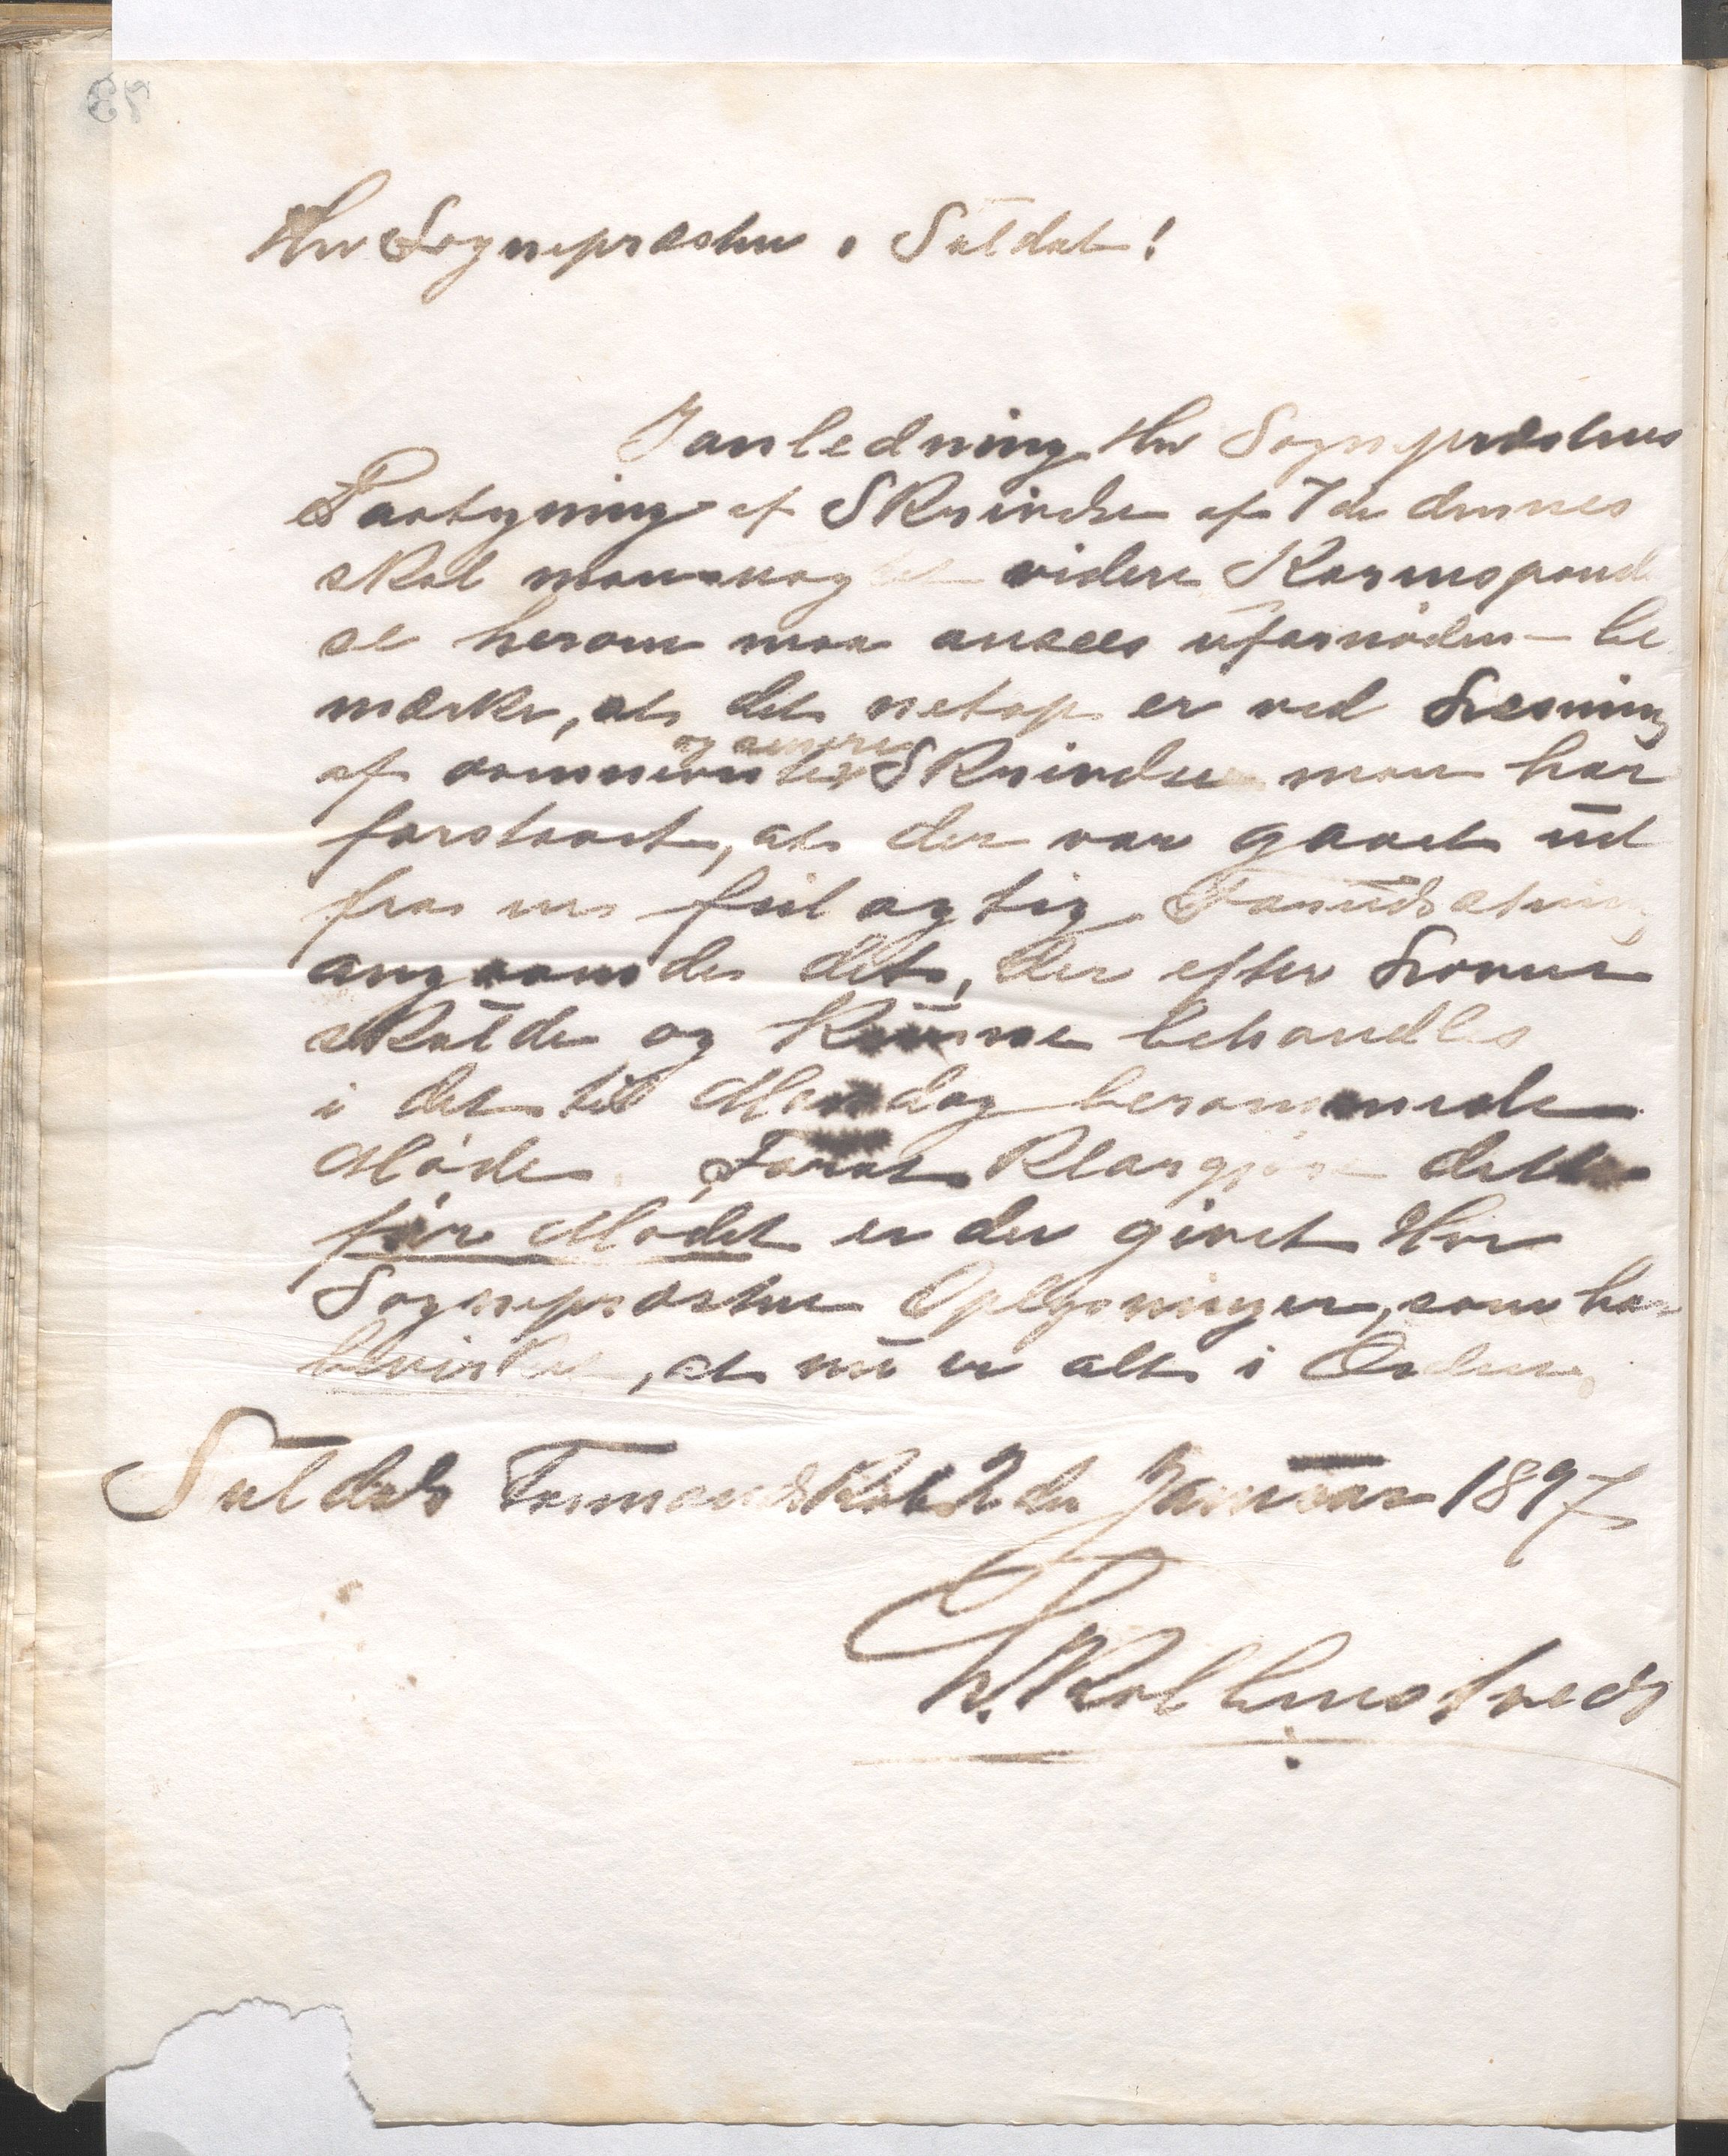 73
Hr Sognepræsten i Suldal!
I anledning Hr Sognepræstens
Paategning af Skrivelse af 7de dennes
skal man – uagtet videre Korrespond
se herom maa ansees ufornøden – be
mærke, at det netop er ved Læsning
og senere
af Skrivelse man har
forstaaet, at der var gaaet ud
fra en feilagtig Forudsætning
angaaende det, der efter Loven
skulde og kunne behandles
i det til Mandag berammede
Møde. Forat klargjøre dette
før Mødet er der givet Hr
Sognepræsten Oplysninger, som har
bevirket, at nu er alt i Orden.
Suldals Formandskab 2de Januar 1897
W. Kolbenstvedt